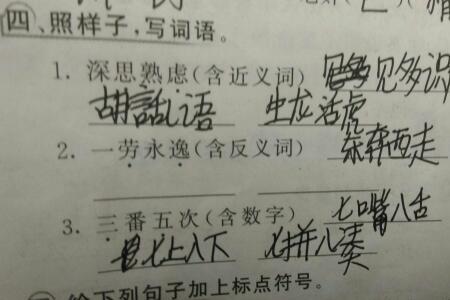 四、照样子，写词语。
1. 深思熟虑(含近义词) 见多识
胡話乱语 生龙活虎
2. 一劳永逸(含反义词) 东奔西走
3. 三番五次(含数字) 七嘴八舌
七上八下 七拼八凑
给下列句子加上标点符号。